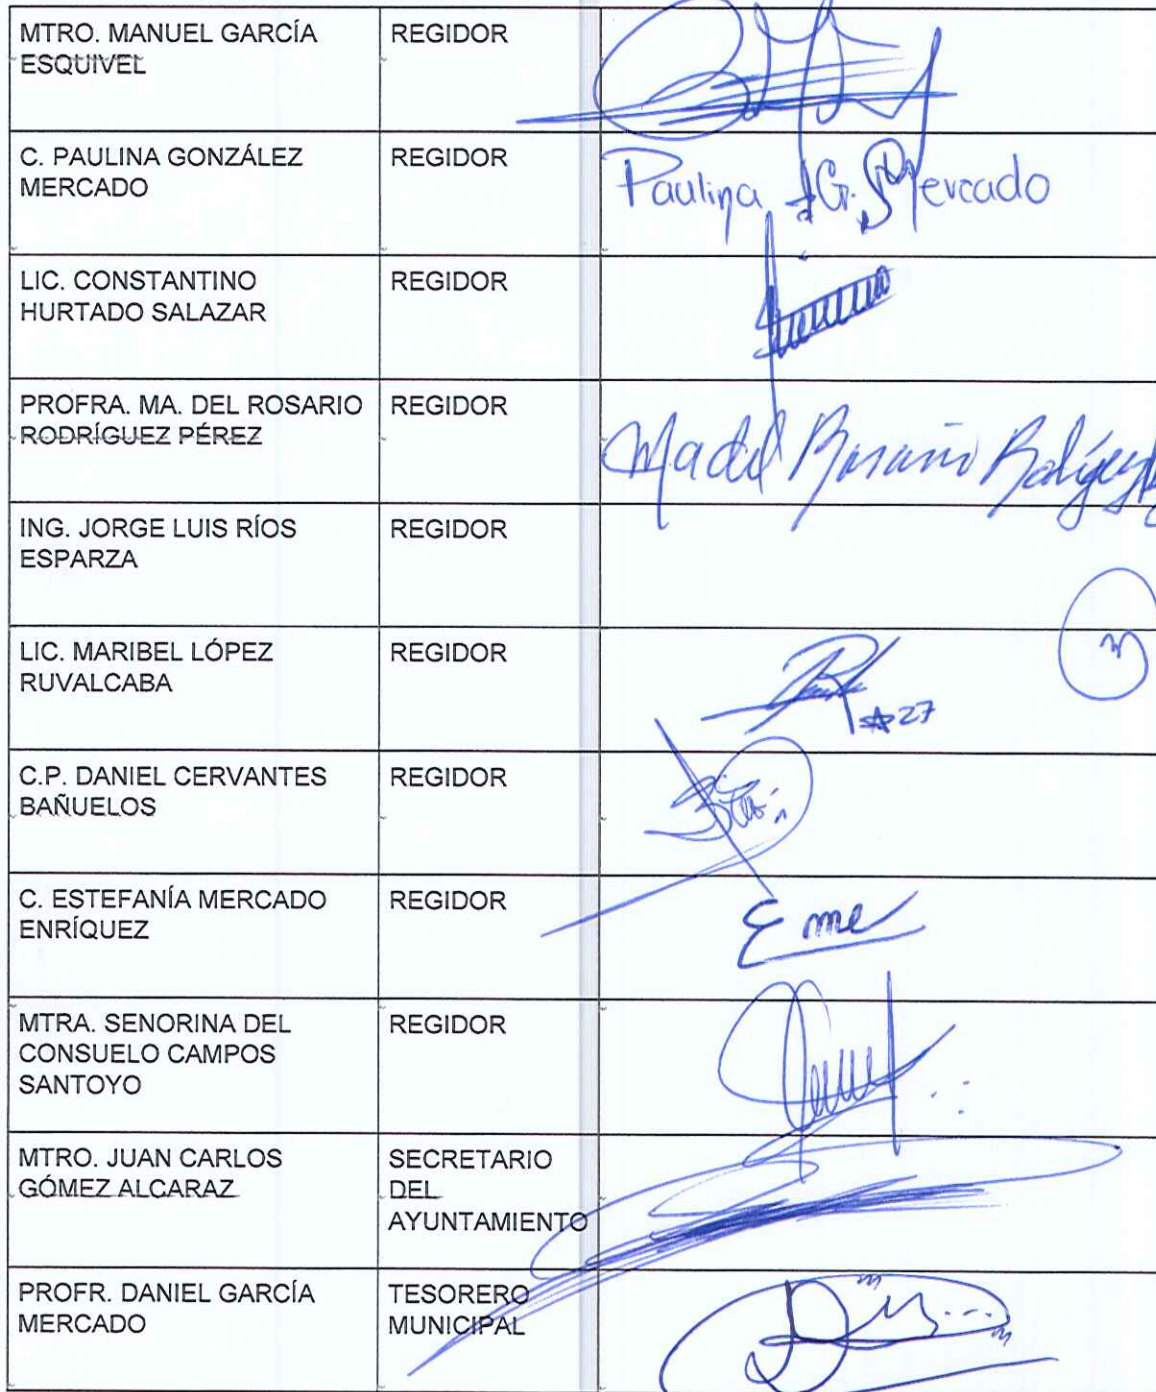 MTRO. MANUEL GARCÍA
ESQUIVEL
REGIDOR
C. PAULINA GONZÁLEZ
MERCADO
REGIDOR
Paulina G. Mercado
LIC. CONSTANTINO
HURTADO SALAZAR
REGIDOR
PROFRA. MA. DEL ROSARIO
RODRÍGUEZ PÉREZ
REGIDOR
Ma del Rosario
ING. JORGE LUIS RÍOS
ESPARZA
REGIDOR
LIC. MARIBEL LÓPEZ
RUVALCABA
REGIDOR
27
C.P. DANIEL CERVANTES
BAÑUELOS
REGIDOR
C. ESTEFANÍA MERCADO
ENRÍQUEZ
REGIDOR
Eme
MTRA. SENORINA DEL
CONSUELO CAMPOS
SANTOYO
REGIDOR
MTRO. JUAN CARLOS
GÓMEZ ALCARAZ
SECRETARIO
DEL
AYUNTAMIENTO
PROFR. DANIEL GARCÍA
MERCADO
TESORERO
MUNICIPAL